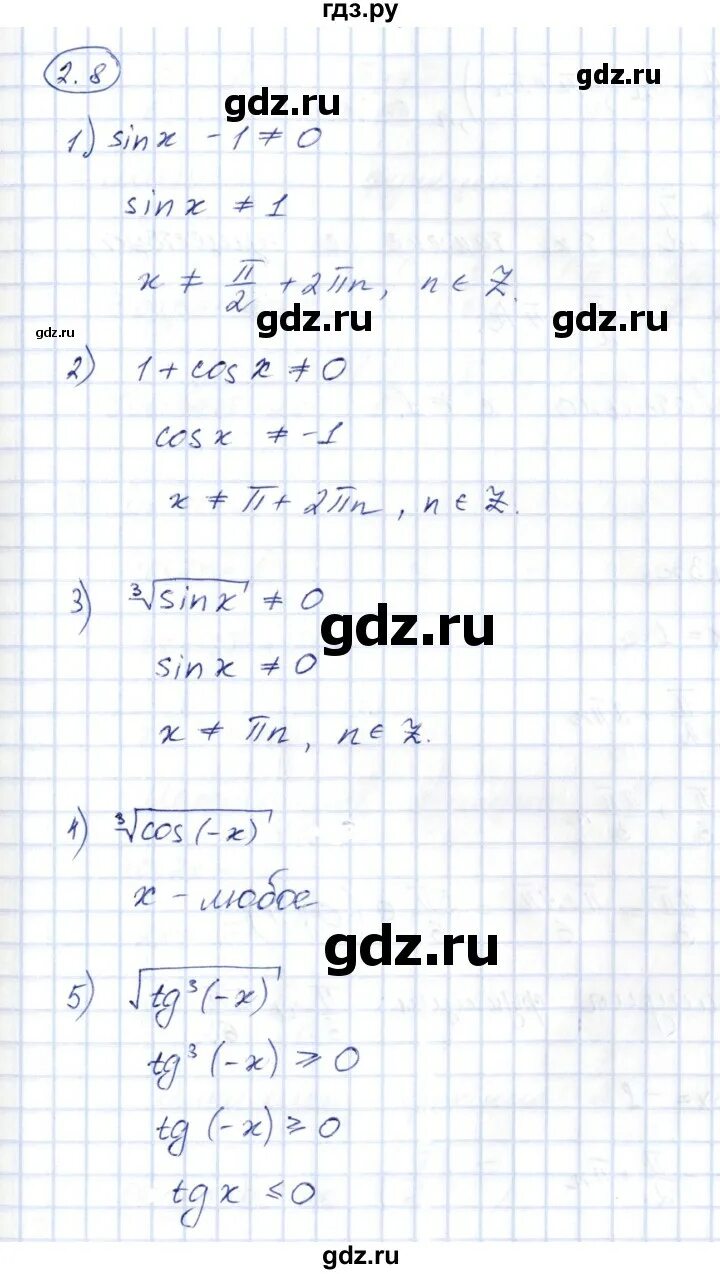 гдз.ру
2.8
gdz.ru
gdz.ru
1) sin x - 1 ≠ 0
sin x ≠ 1
x ≠ π/2 + 2πn, n ∈ Z.
gdz.ru
gdz.ru
gdz.ru
2) 1 + cos x ≠ 0
cos x ≠ -1
x ≠ π + 2πn, n ∈ Z.
3) ∛sin x ≠ 0
gdz.ru
sin x ≠ 0
x ≠ πn, n ∈ Z.
4) ∛cos(-x)
x - любое
gdz.ru
5) √tg³(-x)
tg³(-x) ⩾ 0
tg(-x) ⩾ 0
tg x ⩽ 0
gdz.ru